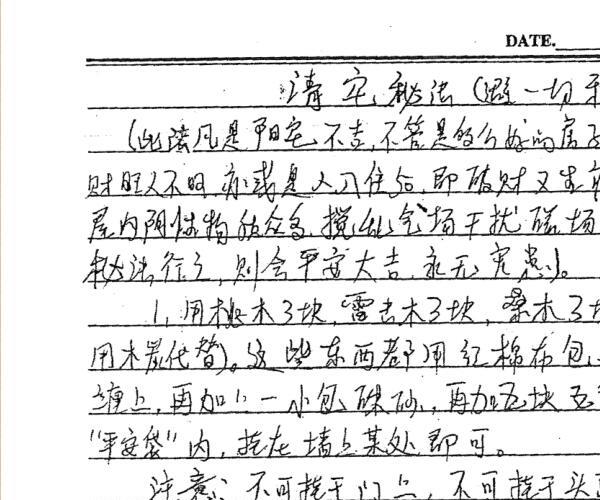 DATE.
清宅秘法（避一切
（此法凡是阳宅不吉，不管是的么好的房
财旺人不旺，亦或是人入住后，即破财又生
屋内阴性物种众多，搅乱气场干扰磁场
秘法行之，则会平安大吉，永无灾患）。
1，用桃木3块，雷击木3块，桑木3块
用木炭代替）。这些东西都用红棉布包
缠上，再加上一小包硃砂，再加五块五
“平安袋”内，挂在墙上某处即可。
注意：不可挂于门上，不可挂于头